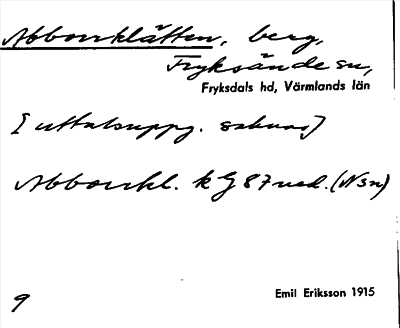 Abborrklätten, berg,
Fryksände sn,
Fryksdals hd, Värmlands län
[uttalsuppg. saknas]
Abborrkl. k G 87 ned. (Nsn)
Emil Eriksson 1915
9